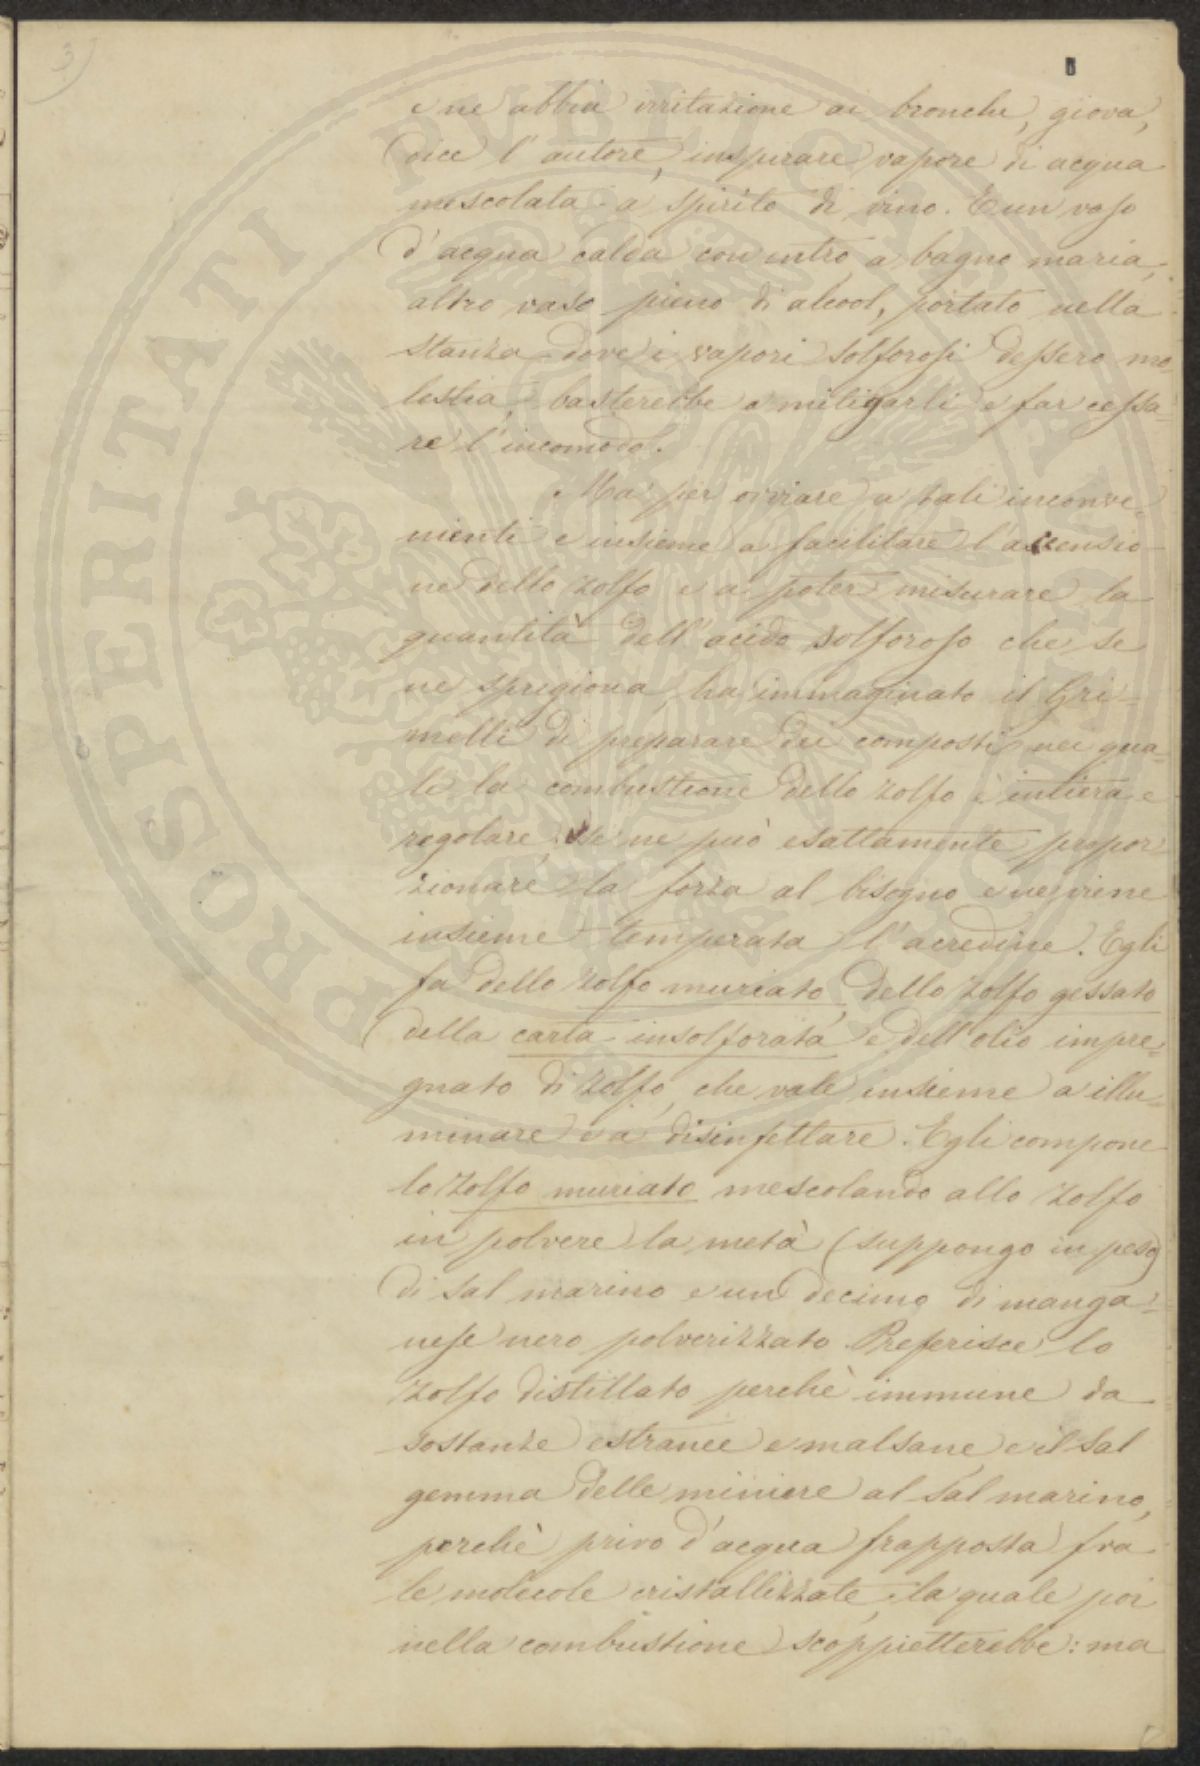 3)
e ne abbia irritazione ai bronchi, giova,
dice l'autore, inspirare vapore di acqua
mescolata a spirito di vino. E un vaso
d'acqua calda con entro, a bagno maria,
altro vaso pieno di alcool, portato nella
stanza dove i vapori solforosi dessero mo=
lestia, basterebbe a mitigarli e far cessa=
re l'incomodo.
Ma per ovviare a tali inconve-
nienti e insieme a facilitare l'accensio-
ne dello zolfo e a poter misurare la
quantità dell'acido solforoso che se
ne sprigiona, ha immaginato il Gri-
melli di preparare dei composti nei qua=
li la combustione dello zolfo è intiera e
regolare, se ne può esattamente propor
zionare la forza al bisogno e ne viene
insieme temperata l'acredine. Egli
fa dello zolfo muriato, dello zolfo gessato
della carta insolforata e dell'olio impre=
gnato di zolfo, che vale insieme a illu=
minare e a disinfettare. Egli compone
lo zolfo muriato mescolando allo zolfo
in polvere la metà (suppongo in peso)
di sal marino e un decimo di manga=
nese nero polverizzato. Preferisce lo
zolfo distillato perchè immune da
sostanze estranee e malsane, e il sal
gemma delle miniere al sal marino,
perchè privo d'acqua frapposta fra
le molecole cristallizzate, la quale poi
nella combustione scoppietterebbe: ma
PROSPERITATI PUBLICAE AUGENDAE